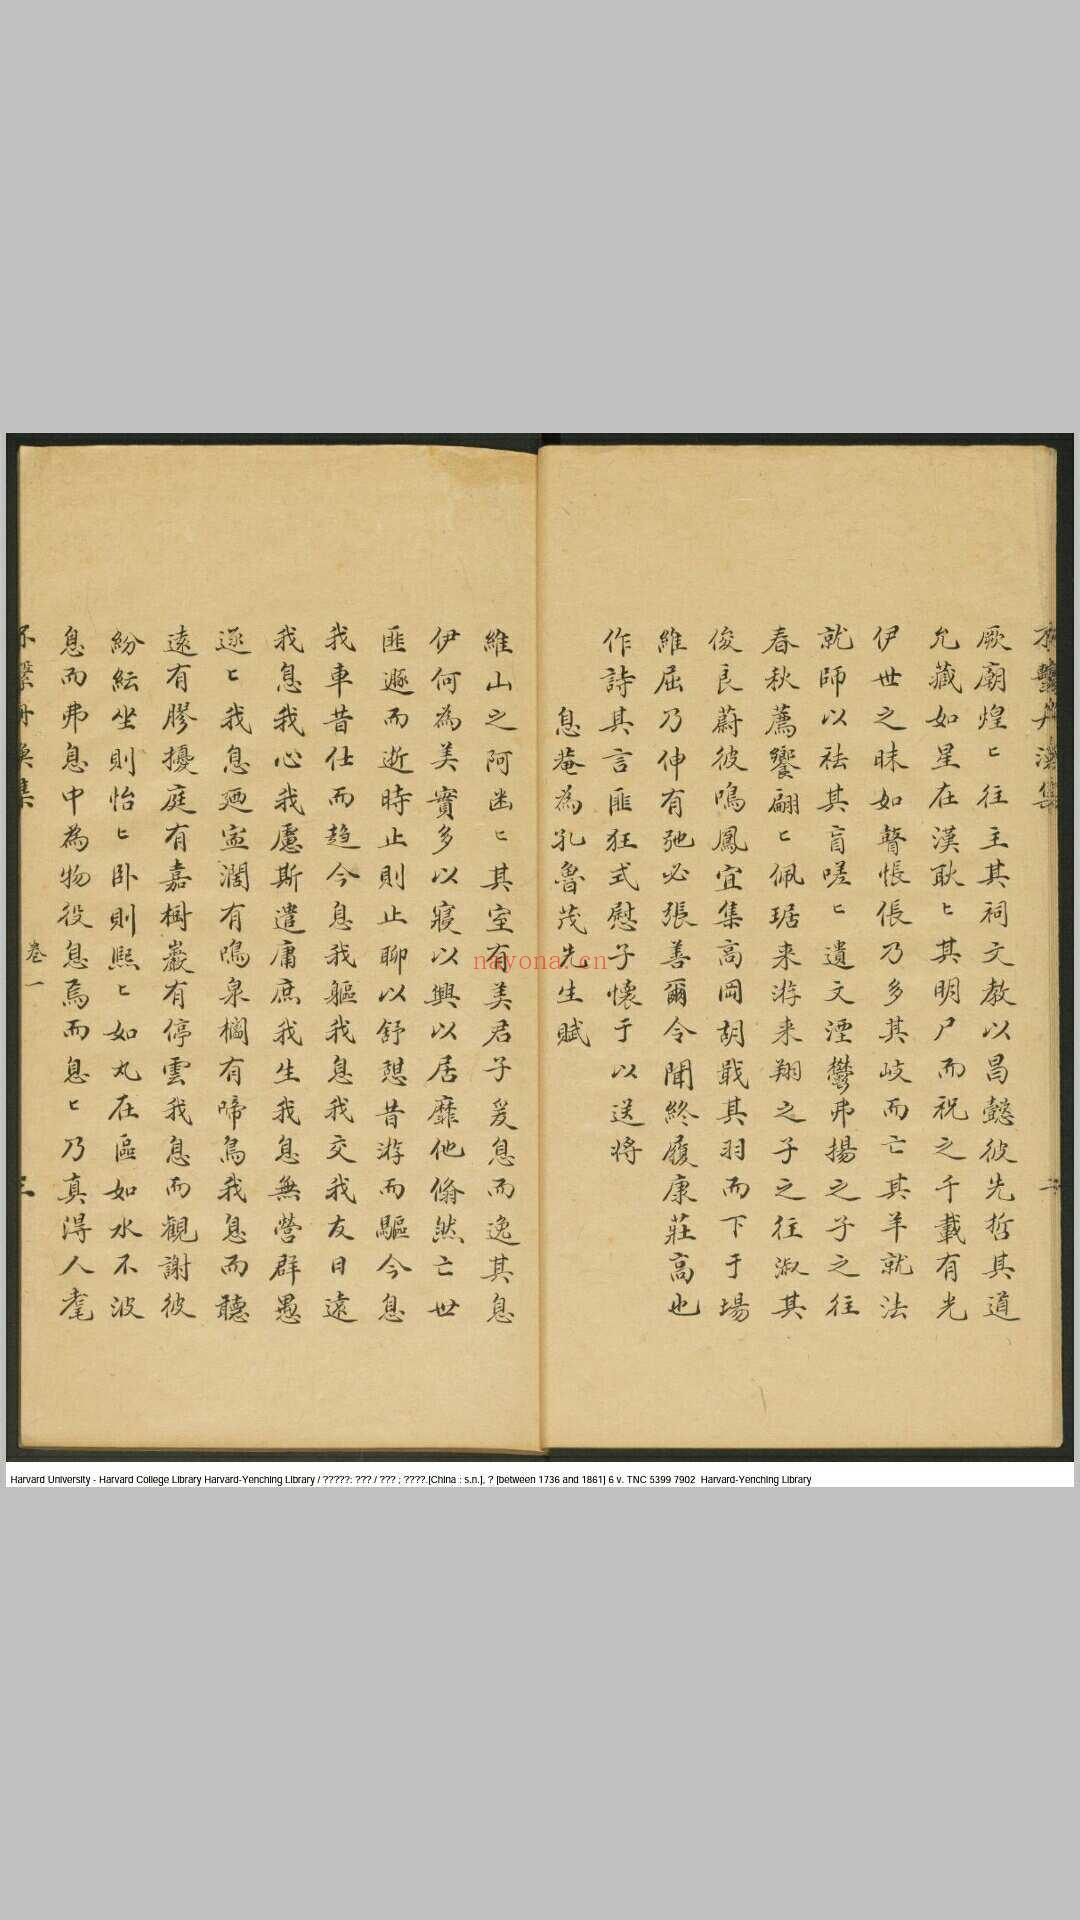 不繫舟漁集
二
厥廟煌〻往主其祠文教以昌懿彼先哲其道
允藏如星在漢耿〻其明尸而祝之千載有光
伊世之昧如瞽悵倀乃多其岐而亡其羊就法
就師以祛其盲嗟〻遺文湮鬱弗揚之子之往
春秋薦饗翩〻佩琚来游来翔之子之往淑其
俊良蔚彼鳴鳳宜集高岡胡戢其羽而下于場
維屈乃伸有弛必張善爾令聞終履康莊高也
作詩其言匪狂式慰子懷于以送将
息菴為孔魯茂先生賦
維山之阿幽〻其室有美君子爰息而逸其息
伊何為美實多以寢以興以居靡他翛然亡世
匪遯而逝時止則止聊以舒憩昔游而驅今息
我車昔仕而趋今息我軀我息我交我友日遠
我息我心我慮斯遣庸庶我生我息無營群愚
逐〻我息廼寍濶有鳴泉櫩有啼鳥我息而聽
逺有膠擾庭有嘉樹巖有停雲我息而觀謝彼
紛紜坐則怡〻卧則熈〻如丸在區如水不波
息而弗息中為物役息焉而息〻乃真淂人耄
不繫舟漁集
卷一
三
nayona.cn
Harvard University - Harvard College Library Harvard-Yenching Library / ?????: ??? / ??? ; ????.[China : s.n.], ? [between 1736 and 1861] 6 v. TNC 5399 7902 Harvard-Yenching Library